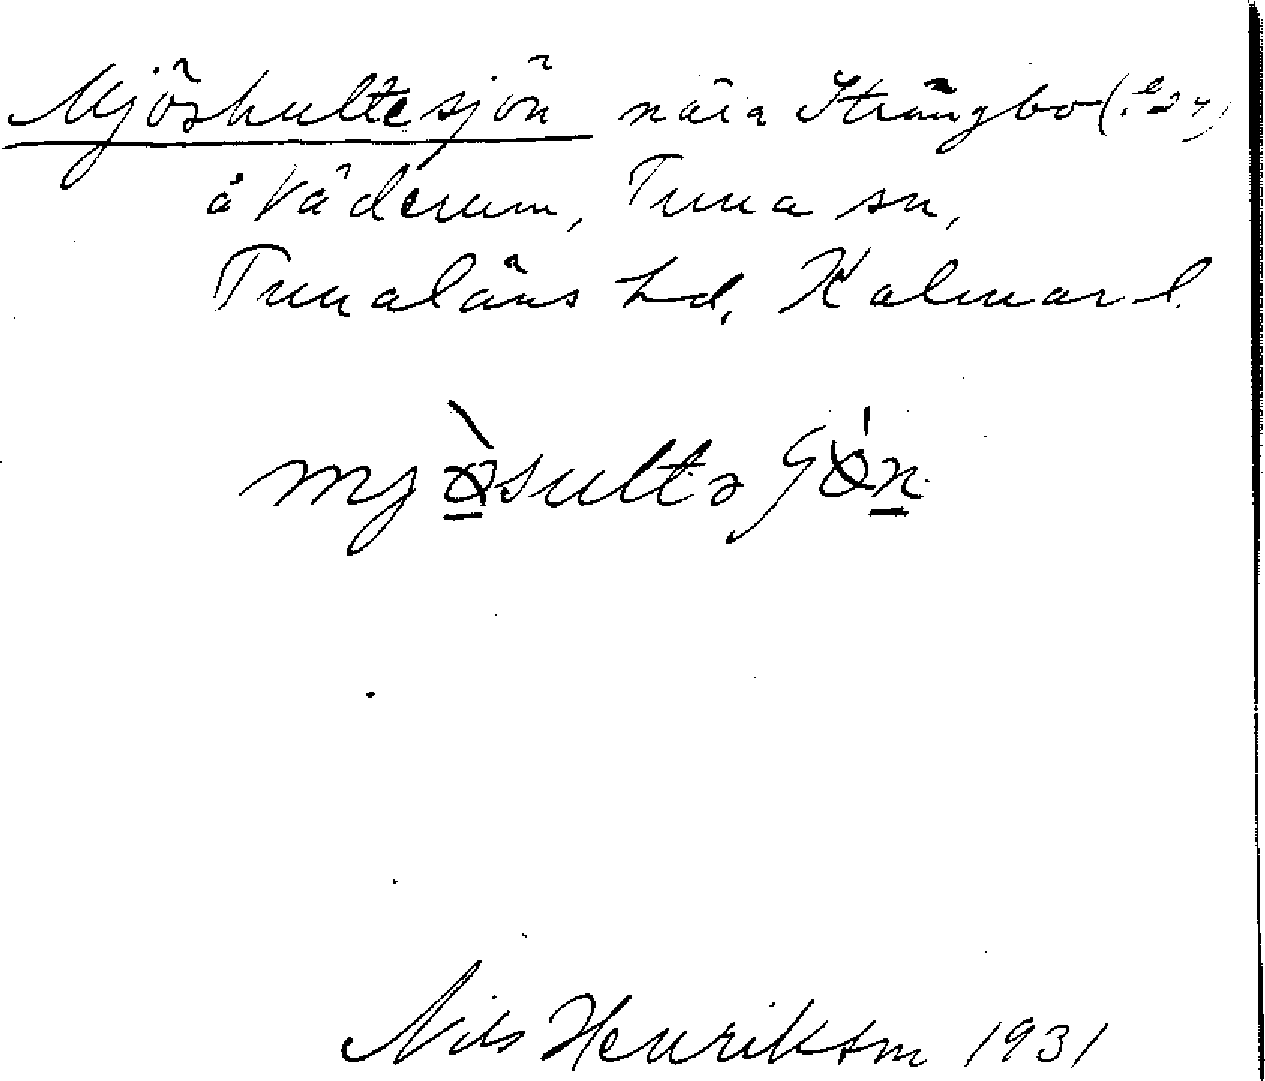 Mjöshultesjön nära Strångbo (
å Väderum, Tuna sn,
Tunaläns hd, Kalmar l.
mjøsultə
Nils Henrikson 1931